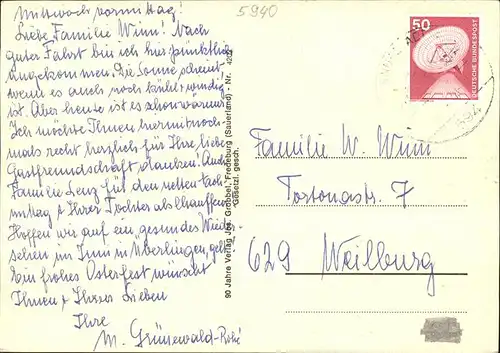 Mittwoch vormittag!
Liebe Familie Wimi! Nach
guter Fahrt bin ich hier pünktlich
angekommen. Die Sonne scheint
wenn es auch noch kühl + windig
ist. Aber heute ist es schon warm.
Ich möchte Ihnen hiermit noch-
mals recht herzlich für Ihre liebe
Gastfreundschaft danken! Auch
Familie Lenz für den netten Nach-
mittag + Ihrer Tochter als
Hoffen wir auf ein gesundes Wieder-
sehen im Juni in Überlingen, gell.
Ein frohes Osterfest wünscht
Ihnen + Ihren Lieben
Ihre
M. Grünewald-
5940
90 Jahre Verlag Jos. Grobbel, Fredeburg (Sauerland) - Nr. 4202
Gesetzl. gesch.
50
DEUTSCHE BUNDESPOST
Familie W. Wimi
Tortonastr. 7
629 Weilburg